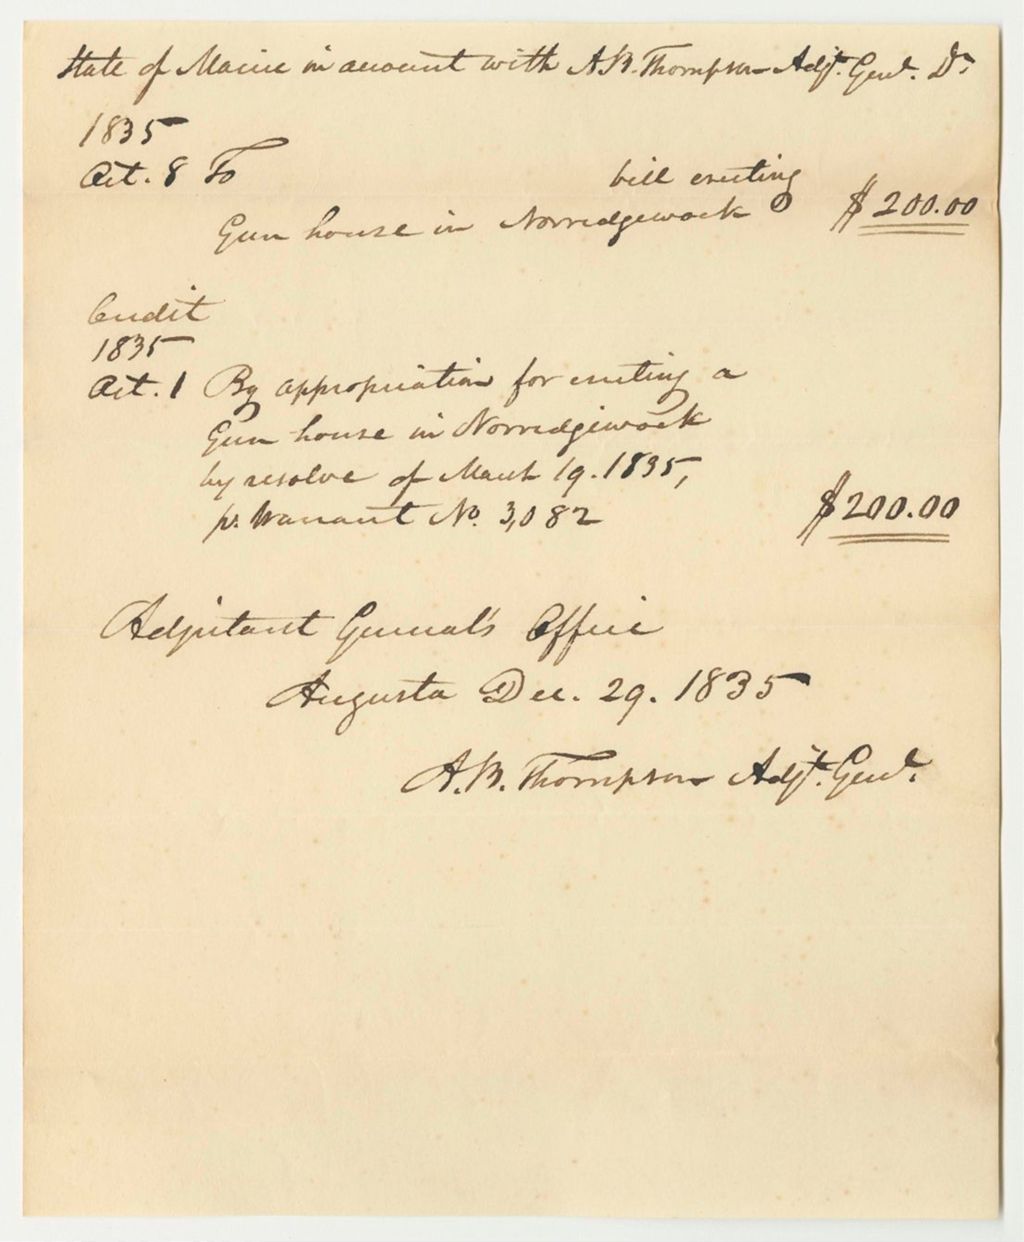 State of Maine in account with A.B. Thompson Adjt. Genl. Dr
1835
Oct. 8 To bill erecting
Gun house in Norredgewock $200.00
Credit
1835
Oct. 1 By appropriation for erecting a
Gun house in Norredgewock
by resolve of March 19. 1835,
pr. Warrant No. 3,082 $200.00
Adjutant General's Office
Augusta Dec. 29. 1835
A.B. Thompson Adjt. Genl.